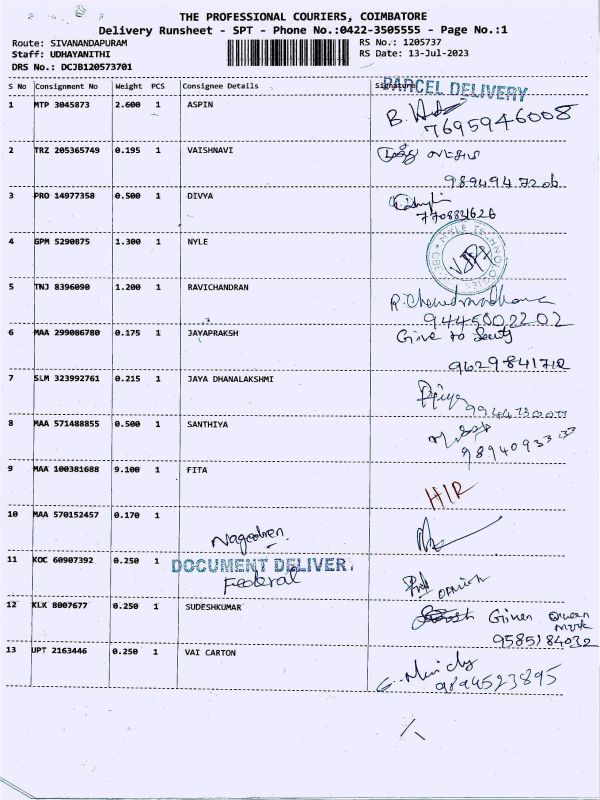 THE PROFESSIONAL COURIERS, COIMBATORE
Delivery Runsheet - SPT - Phone No.:0422-3505555 - Page No.:1
Route: SIVANANDAPURAM RS No.: 1205737
Staff: UDHAYANITHI RS Date: 13-Jul-2023
DRS No.: DCJB120573701
S No Consignment No Weight PCS Consignee Details Signature
PARCEL DELIVERY
1 MTP 3045873 2.600 1 ASPIN
7695946008
2 TRZ 205365749 0.195 1 VAISHNAVI
9894947206
3 PRO 14977358 0.500 1 DIVYA
7708831626
4 GPM 5290875 1.300 1 NYLE
5 TNJ 8396090 1.200 1 RAVICHANDRAN
9445002202
6 MAA 299086780 0.175 1 JAYAPRAKSH Give to
9629841712
7 SLM 323992761 0.215 1 JAYA DHANALAKSHMI Priya
8 MAA 571488855 0.500 1 SANTHIYA
9 MAA 100381688 9.100 1 FITA
H/R
10 MAA 570152457 0.170 1
11 KOC 60907392 0.250 1 DOCUMENT DELIVER
Federal
12 KLK 8007677 0.250 1 SUDESHKUMAR Given Queen
9585184032
13 UPT 2163446 0.250 1 VAI CARTON
9894523895